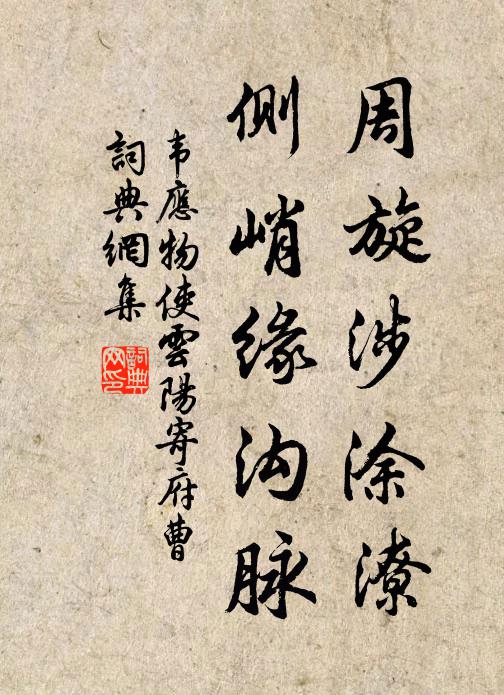 周旋涉涂潦
側峭緣沟脉
韦應物使雲陽寄府曹
詞典網集
詞典网印